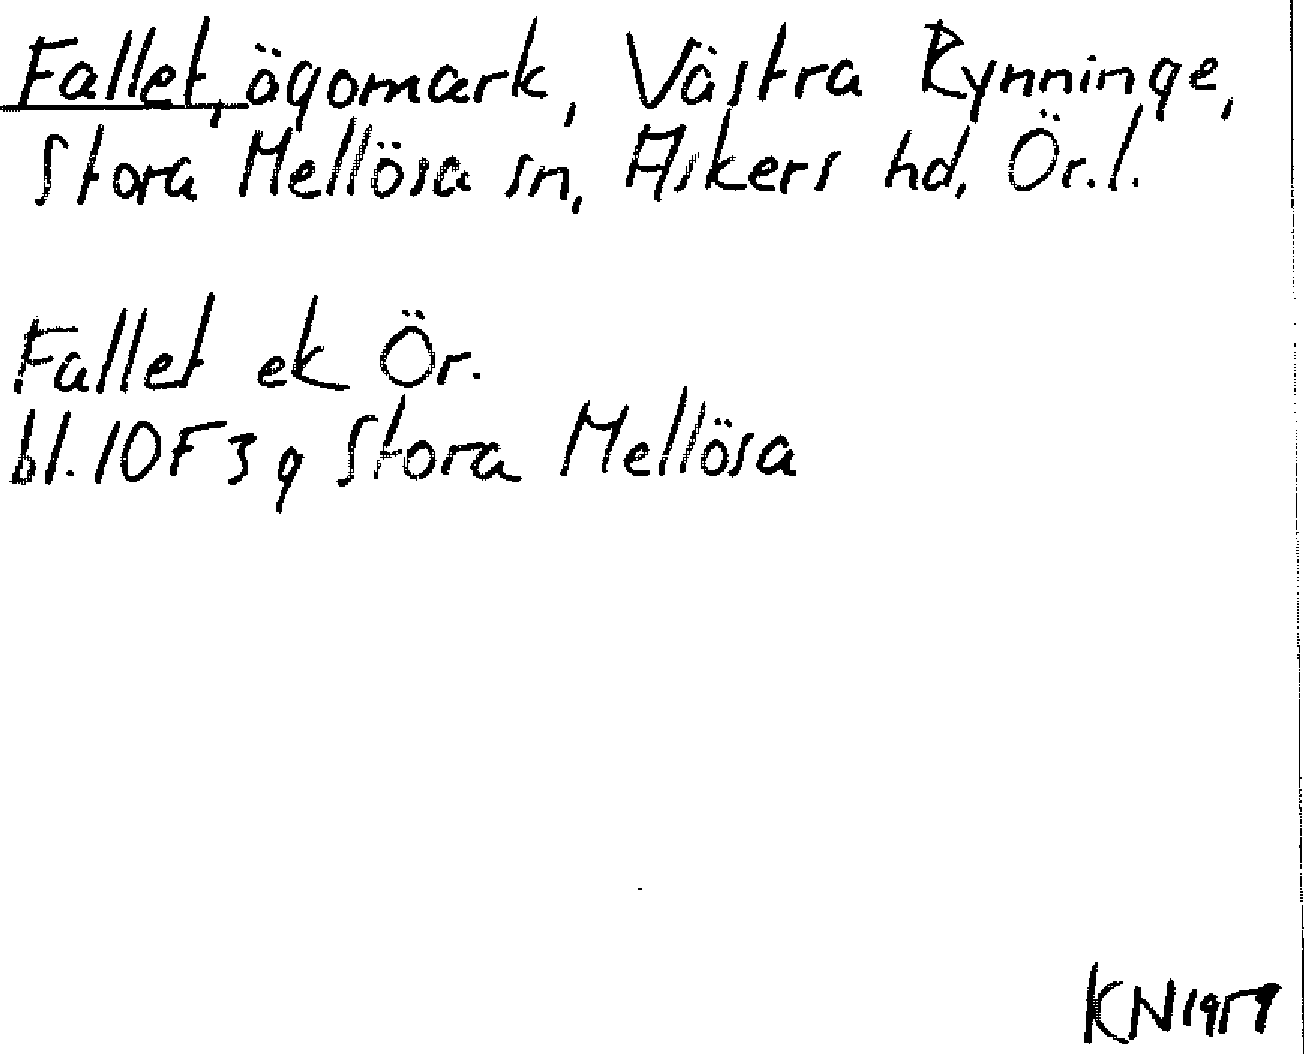 Fallet, ägomark, Västra Rynninge,
Stora Mellösa sn, Askers hd, Ör.l.
Fallet ek Ör.
bl. 10F 3g Stora Mellösa
KN 1959